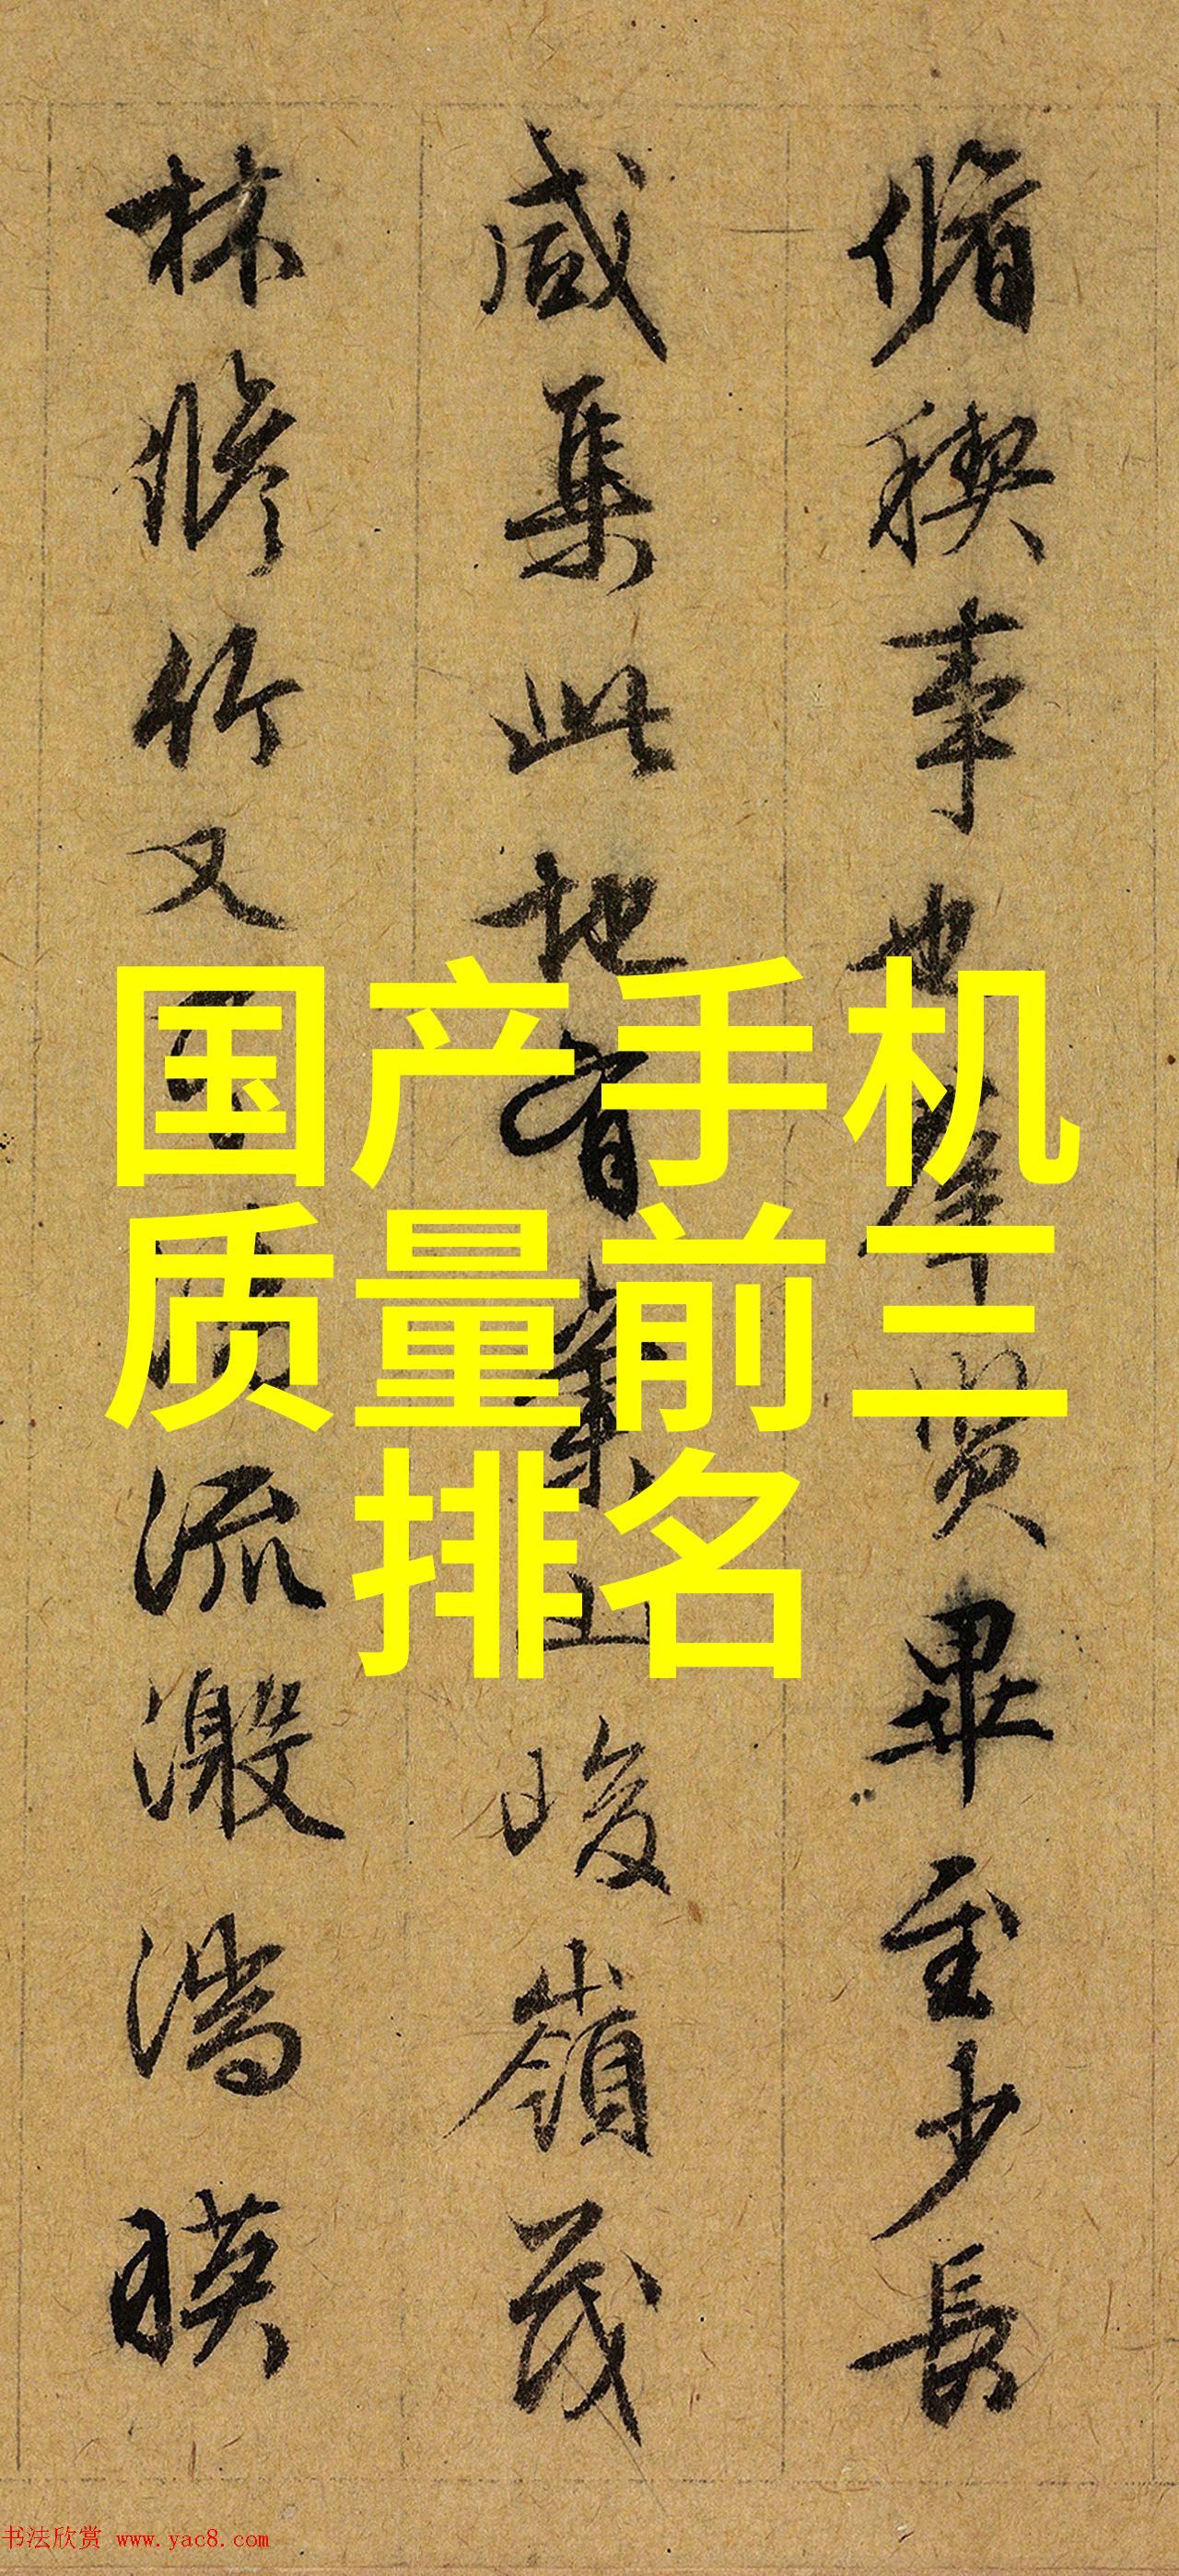 脩稧事也群賢畢至少長
咸集此地有峻領茂
林脩竹又流激湍暎
国产手机
质量前三
排名
书法欣赏 www.yac8.com